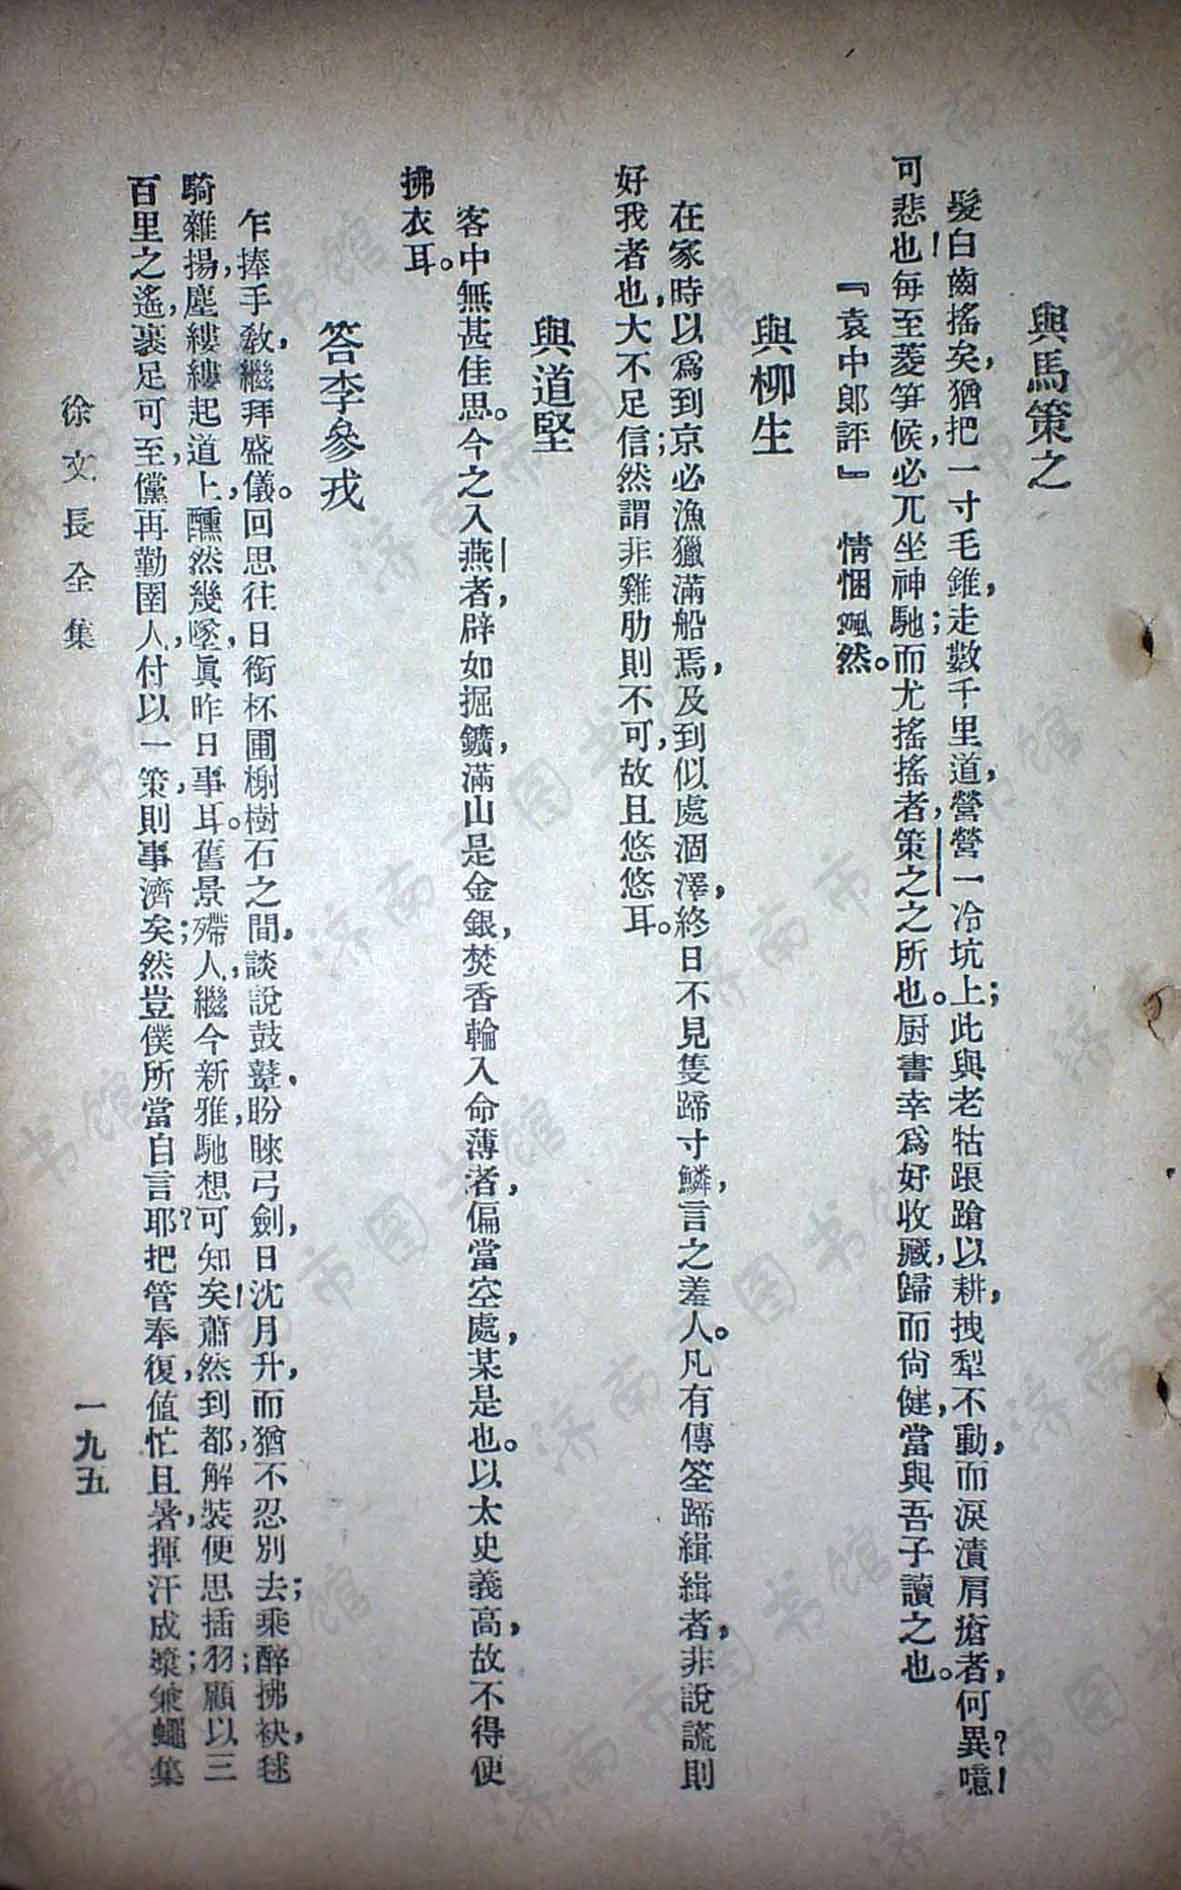 與馬策之
髮白齒搖矣，猶把一寸毛錐，走數千里道，營營一冷坑上；此與老牯踉蹌以耕，拽犁不動，而淚漬肩瘡者，何異？噫！
可悲也！每至菱笋候，必兀坐神馳；而尤搖搖者，策之之所也。厨書幸爲好收藏，歸而尙健，當與吾子讀之也。
『袁中郎評』　情悃颯然。
與柳生
在家時，以爲到京，必漁獵滿船焉，及到似處涸澤，終日不見隻蹄寸鱗，言之羞人。凡有傳筌蹄緝緝者，非說謊則
好我者也，大不足信；然謂非雞肋則不可，故且悠悠耳。
與道堅
客中無甚佳思。今之入燕者，辟如掘鑛，滿山是金銀，焚香輪入命薄者，偏當空處，某是也。以太史義高，故不得便
拂衣耳。
答李參戎
乍捧手敎，繼拜盛儀。回思往日銜杯圃榭樹石之間，談說鼓鼙，盼睞弓劍，日沈月升，而猶不忍別去；乘醉拂袂，毬
騎雜揚，塵縷縷起道上，醺然幾墜，眞昨日事耳。舊景殢人，繼今新雅，馳想可知矣！蕭然到都，解裝便思插羽；顧以三
百里之遙，裹足可至，儻再勤圉人，付以一策，則事濟矣；然豈僕所當自言耶？把管奉復，値忙且暑，揮汗成漿，兼蠅集
徐文長全集
一九五